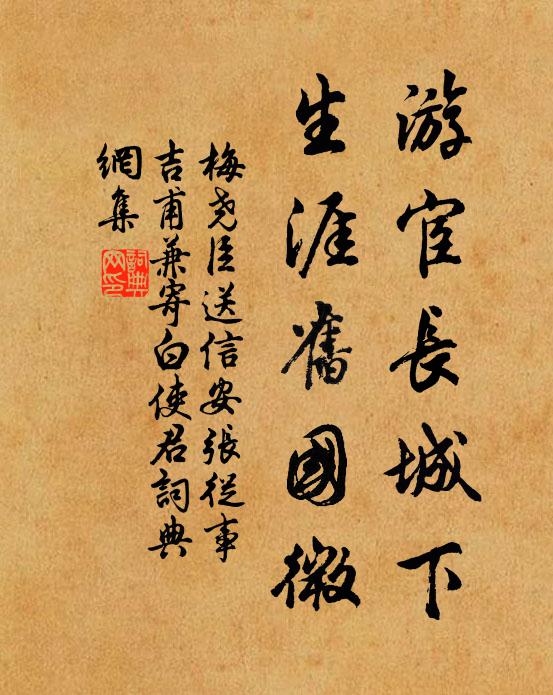 游宦長城下
生涯舊國微
梅尧臣送信安張從事
吉甫兼寄白使君詞典
網集
詞典
网印